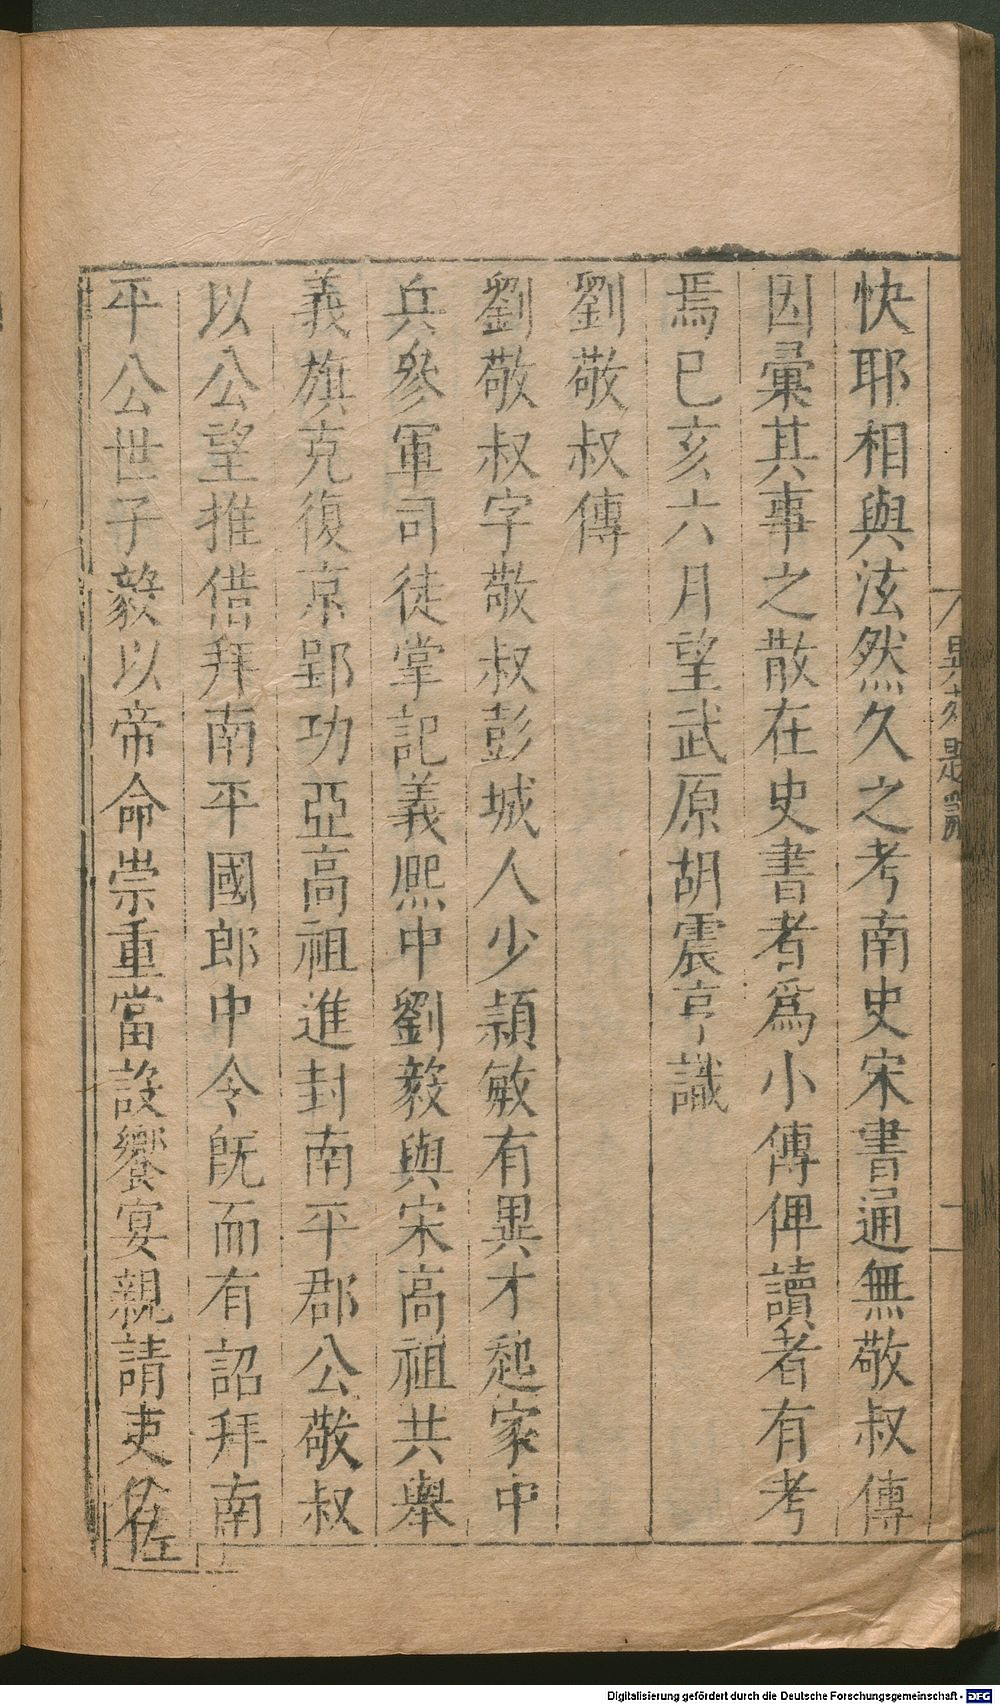 快耶相與泫然久之考南史宋書通無敬叔傳
因彙其事之散在史書者爲小傳俾讀者有考
焉巳亥六月望武原胡震亨識
劉敬叔傳
劉敬叔字敬叔彭城人少頴敏有異才起家中
兵參軍司徒掌記義熙中劉毅與宋高祖共舉
義旗克復京郢功亞高祖進封南平郡公敬叔
以公望推借拜南平國郎中令旣而有詔拜南
平公世子毅以帝命崇重當設饗宴親請吏佐
Digitalisierung gefördert durch die Deutsche Forschungsgemeinschaft - DFG